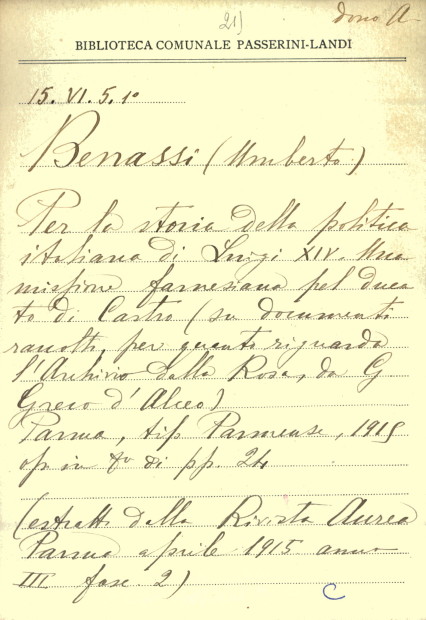 21)
dono A.
BIBLIOTECA COMUNALE PASSERINI-LANDI
15. VI. 5. 1º
Benassi (Umberto)
Per la storia della politica
italiana di Luigi XIV. Una
missione farnesiana pel duca
to di Castro (su documenti
raccolti, per quanto riguarda
l'Archivio dalla Rosa, da G
Greco d'Alceo)
Parma, tip. Parmense, 1915
op. in 8º di pp. 24
(estratti dalla Rivista Aurea
Parma aprile 1915 anno
III fasc 2)
C